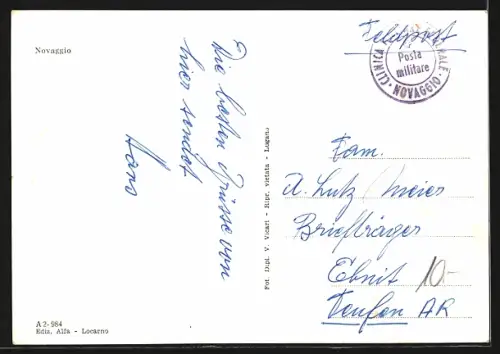 Novaggio
Die besten Grüsse von
hier sendet
Hans
A 2-984
Ediz. Alfa - Locarno
Fot. Dipl. V. Vicari - Ripr. vietata - Lugano
Feldpost
CLINICA
Posta
militare
· NOVAGGIO ·
Fam.
A. Lutz / Meier
Briefträger
Ebnit
10.-
Teufen AR